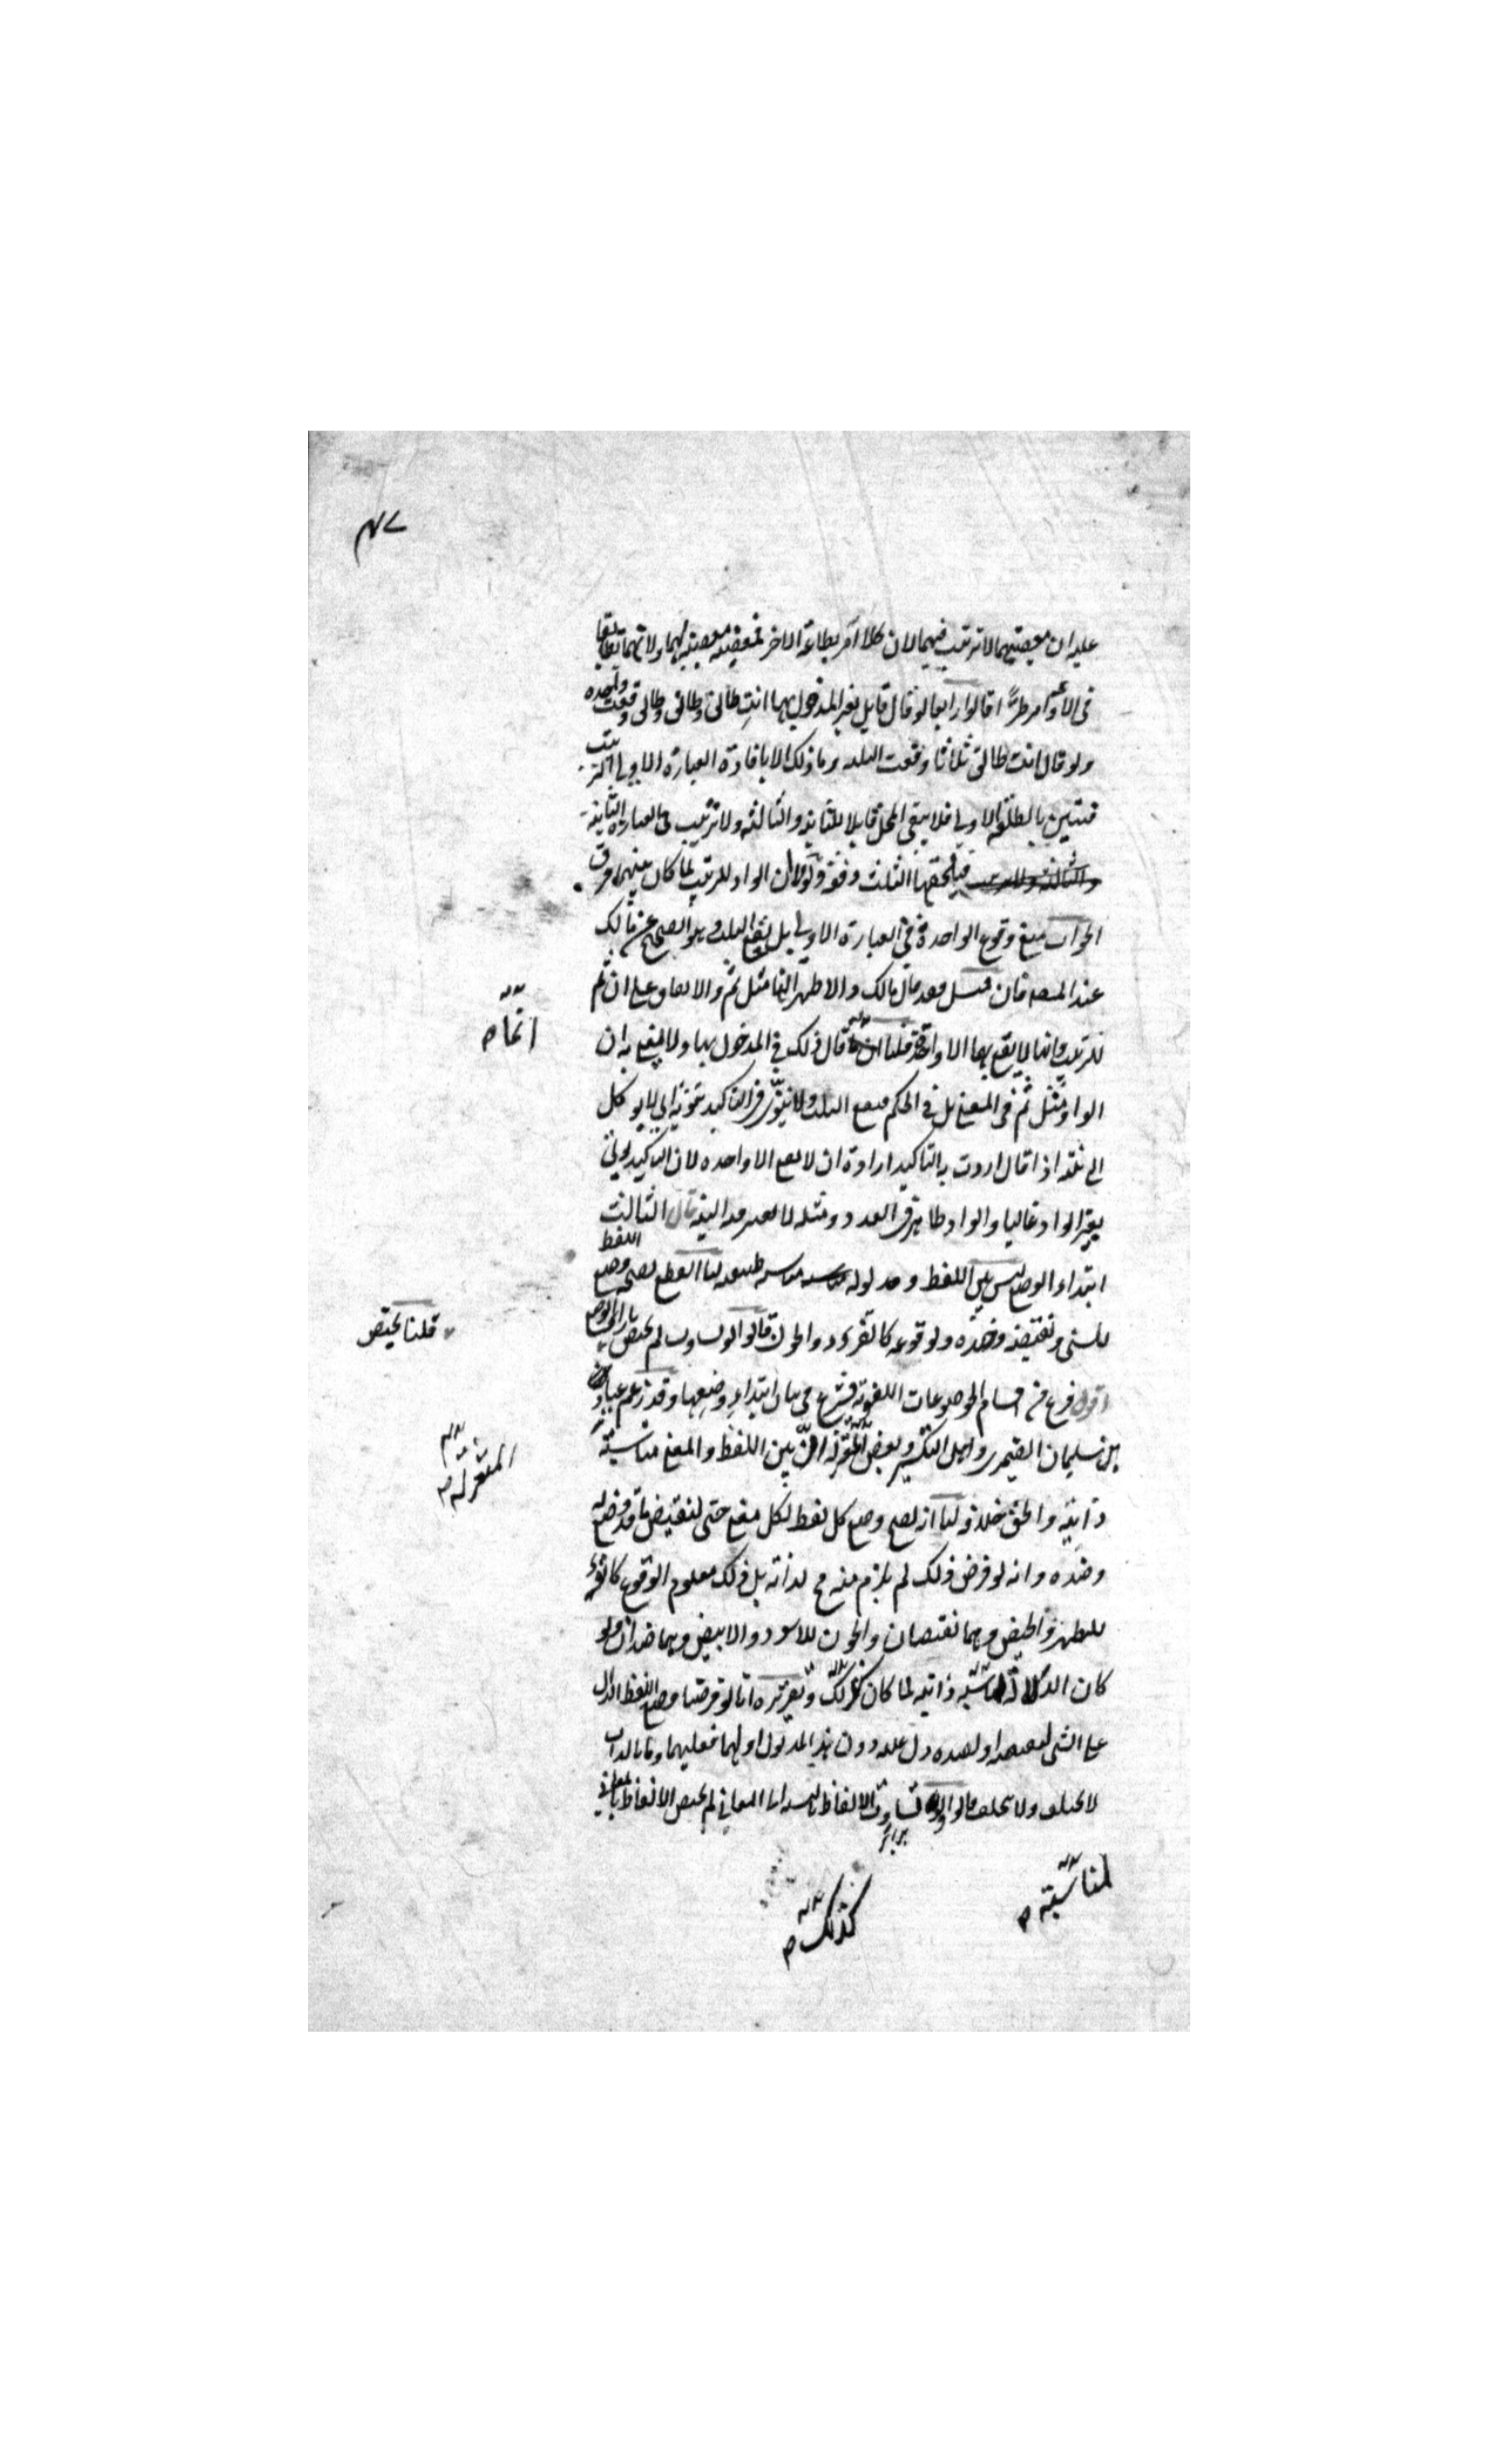 ٤٧
عليه ان معصيتهما لا ترتيب فيهما لان كلا امر بطاعة الاخر فمعصيته معصية لهما ولانهما
في الاوامر قالوا رابعا لو قال قايل لغير المدخول بها انت طالق وطالق وطالق وقعت واحده
ولو قال انت طالق ثلاثا وقعت الثلث وما ذلك الا بافادة العبارة الاولى الترتيب
فتبين بالطلقة الاولى فلا يبقى المحل قابلا للثانية والثالثة ولا ترتيب في العبارة الثانية
والثالثة ولا ترتيب فيلحقها الثلث دفعة ولولا ان الواو للترتيب لما كان بينهما فرق
الجواب منع وقوع الواحدة في العبارة الاولى بل يقع الثلث وهو الصحيح عن مالك
عند المصنف فان قيل فقد قال مالك والاظهر انها مثل ثم والاتفاق على ان ثم
للترتيب وانها لا يقع بها الا واحدة قلنا قال ذلك في المدخول بها ولا يعني به ان
الواو مثل ثم في المعنى بل في الحكم فيقع الثلث ولا ينوى في التاكيد اي لا يوكل
الى نيته اذا قال اردت به التاكيد ارادة ان لا يقع الا واحده لان التاكيد يكون
بغير الواو غالبا والواو ظاهر في العدد ومثله لا يعتبر فيه النية قال الثالث
ابتداء الوضع ليس بين اللفظ ومدلوله مناسبة طبيعية لنا القطع بصحة وضع اللفظ
للشئ ونقيضه وضده ولوقوعه كالقرء والجون قالوا لو تساوت لم يختص
اقول فرغ من اقسام الموضوعات اللغوية فشرع في بيان ابتداء وضعها وقد زعم عباد
بن سليمان الصيمري واهل التكسير وبعض المعتزلة ان بين اللفظ والمعنى مناسبة
ذاتية والحق خلافه لنا انه يصح وضع كل لفظ لكل معنى حتى لنقيض ما قد وضع له
وضده وانه لو فرض ذلك لم يلزم منه مح لذاته بل ذلك معلوم الوقوع كالقرء
للطهر والحيض وهما نقيضان والجون للاسود والابيض وهما ضدان ولو
كان الدلالة لمناسبة ذاتية لما كان كذلك وتقريره انا لو فرضنا وضع اللفظ الدال
على الشئ لنقيضه او لضده دل عليه دون هذا المدلول او لهما فعليهما وما بالذات
لا يختلف ولا يتخلف قالوا لو تساوت الالفاظ بالنسبة الى المعاني لم يختص الالفاظ بالمعاني
انها
قلنا يختص
المعتزله
لمناسبة
كذلك